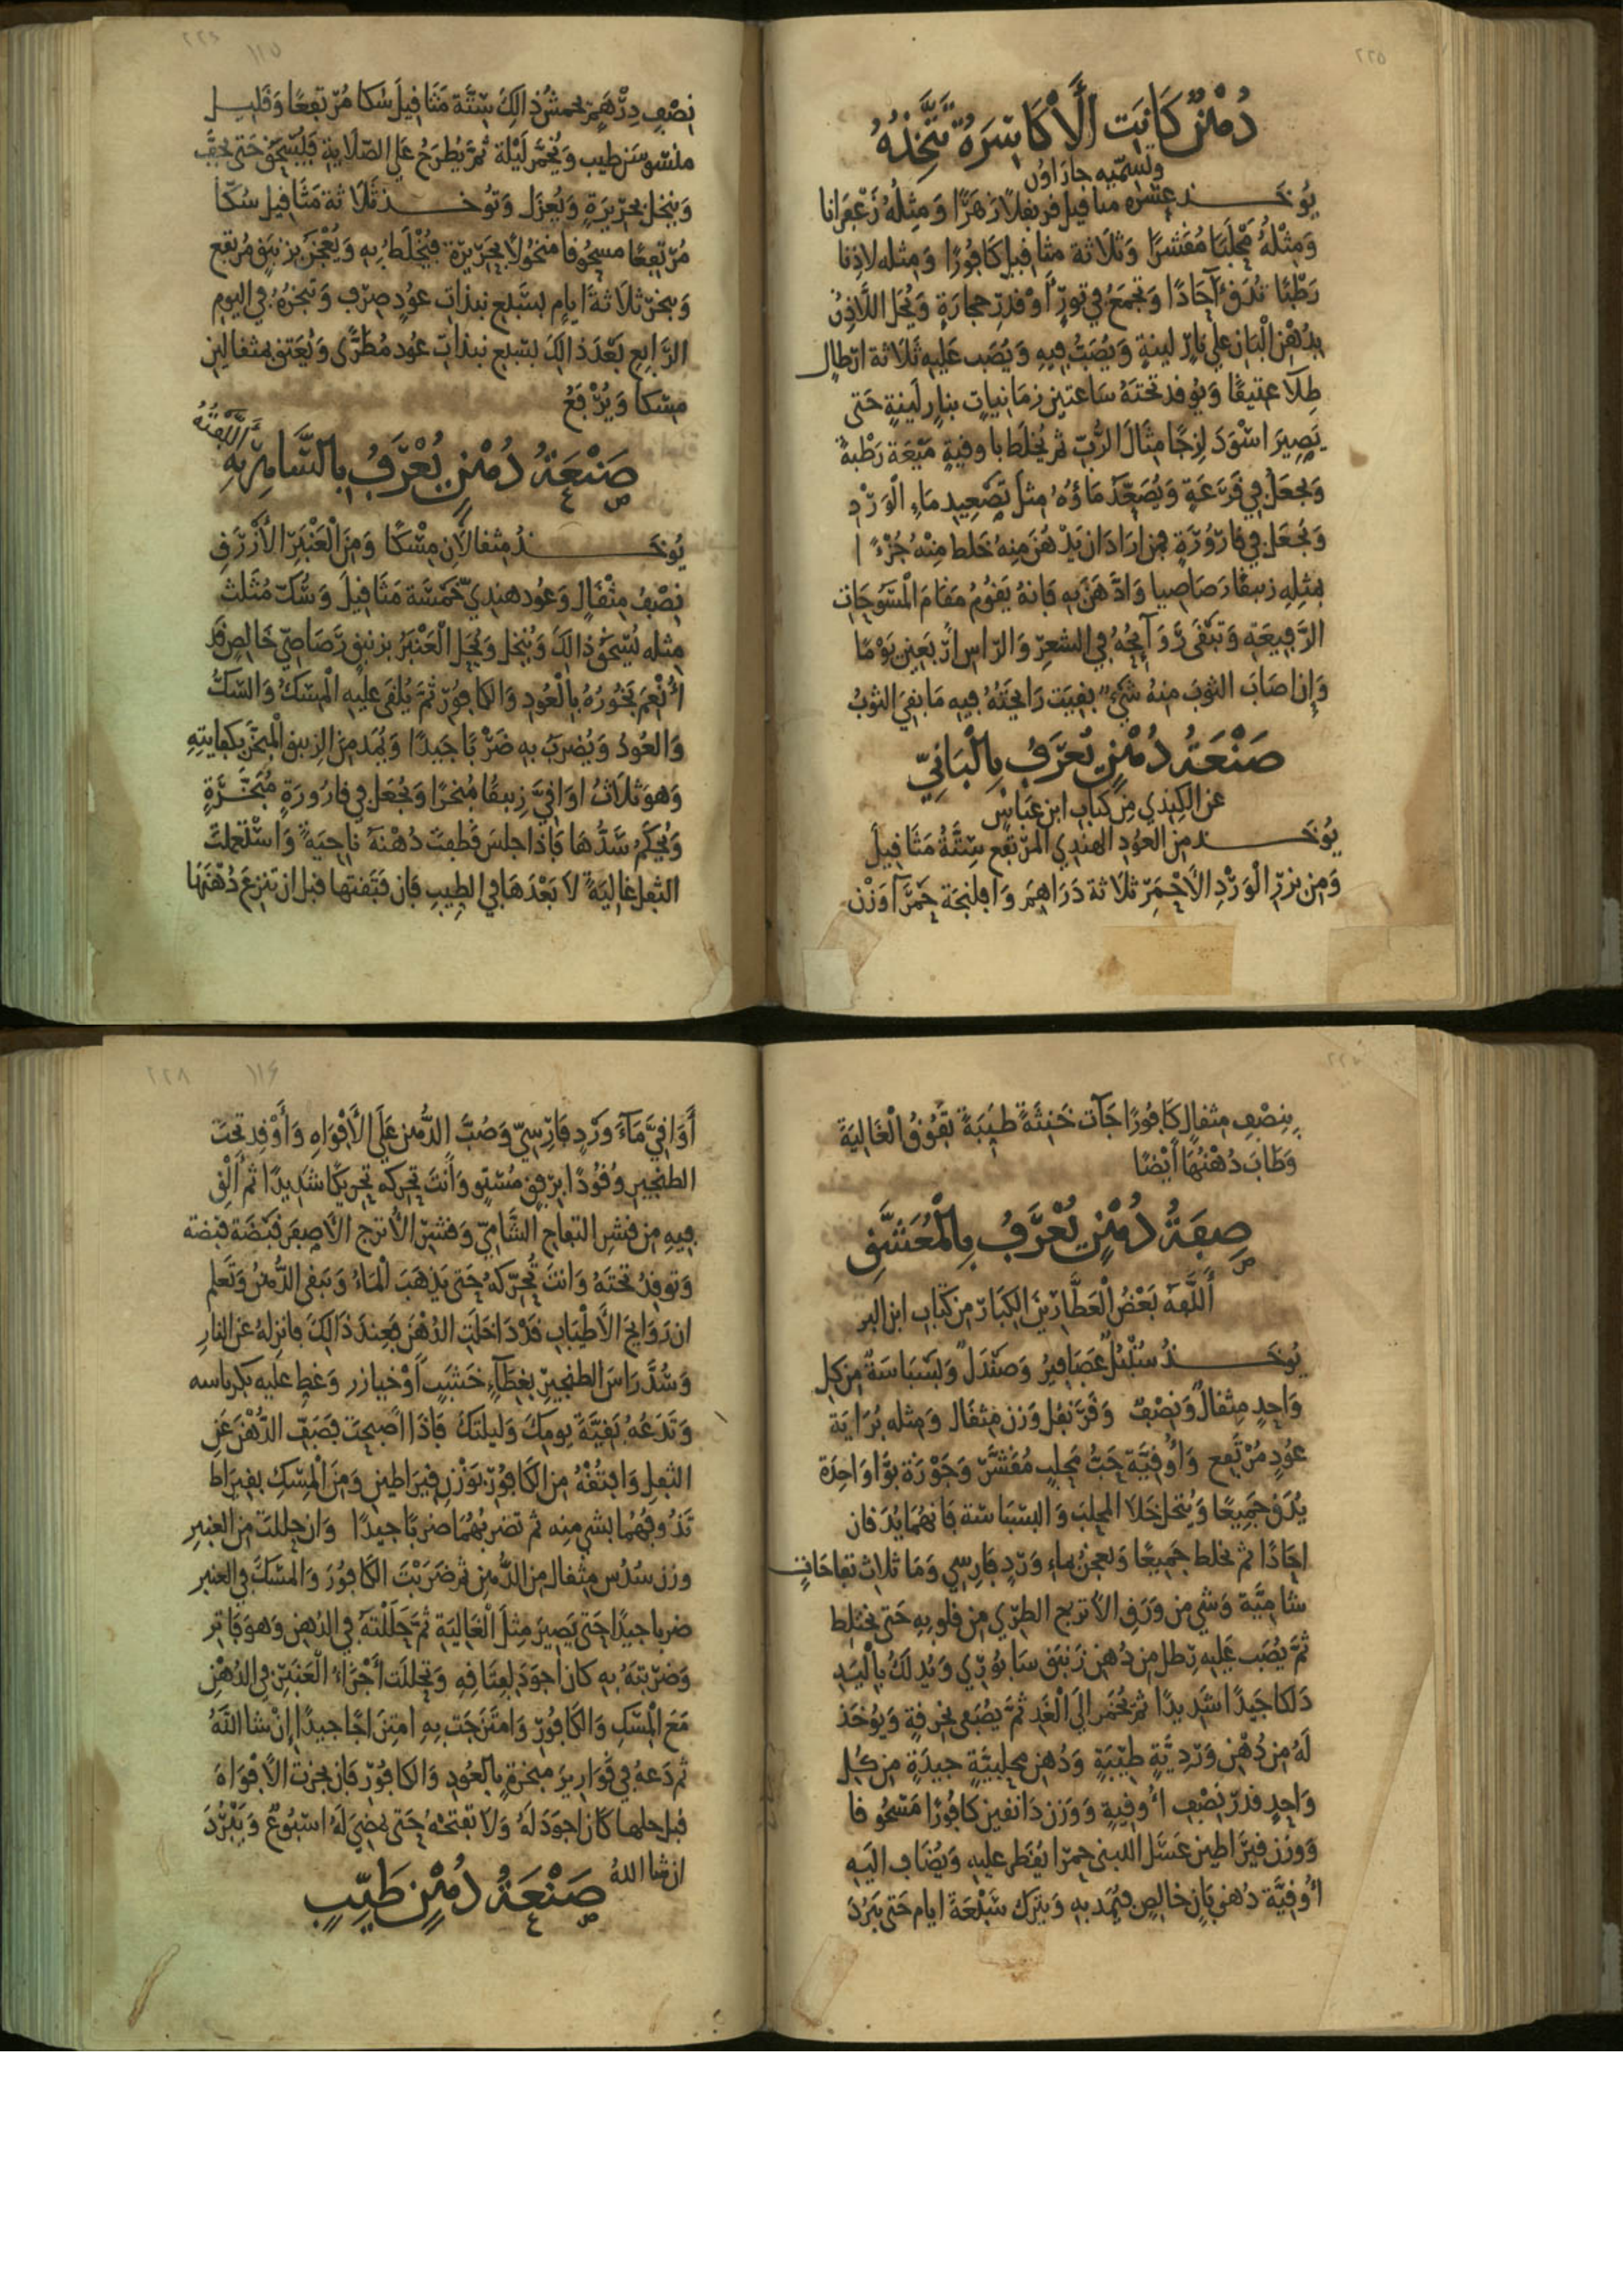 ٢٢٥
دُهْنٌ كَانَتِ الْأَكَاسِرَةُ تَتَّخِذُهُ
وتسميه جاراون
يُوخَذ عشرة مثاقيل قرنفلا زهرًا وَمِثلُهُ زَعفَرانا
وَمِثلهُ مَحْلَبًا مُقَشرًا وَثلاثة مثاقيل كَافورًا ومثله لاذنا
رَطبًا تُدَق آحَادًا وَتجمَعُ في تورٍ أو قدرِ حجارَةٍ وَيُحَل اللاذِنُ
بِدُهْن البَان علي نارٍ لينةٍ وَيُصَبُّ فيهِ وَيُصَب عَليهِ ثَلَاثة ارطالٍ
طِلآ عتيقًا وَيوقد تحتَهُ سَاعتين زمَانيات بنارٍ لَينةٍ حَتى
يَصِيرَ اسْوَدَ لزجًا مثالَ الرُّبّ ثم يُخلَط باوقيةٍ مَيْعَة رَطْبةً
وَيجعَلُ في قَرعَةٍ وَيُصَعَّدُ مَاؤهُ مِثلَ تَصْعيد مَاءِ الْوَرْدِ
وَيُجعَل في قارُورَةٍ فمن ارَادَ ان يَدْهُنَ مِنهُ خَلط مِنْهُ جُزْءًا
بمثلِهِ زنبقًا رَصَاصِيا وَادَّهَنَ بِهِ فَانهُ يَقُومُ مَقامَ الْمَسُوحَاتِ
الرَّفِيعَةِ وَتَبْقَى رَوَآيحُهُ في الشعرِ وَالرّاسِ ارْبَعينَ يَوْمًا
وَإن اصَابَ الثوبَ مِنهُ شَيْءٌ بَقِيَت رَايحَتُهُ فِيه مَا بَقِيَ الثوبُ
صَنْعَةُ دُهْنٍ يُعْرَفُ بِالْبَانِيِّ
عن الكِندِي مِن كتاب ابن عَبَّاسٍ
يُوخَذ مِنَ العوُدِ الهندِي المرْتَفِع سِتَّةُ مَثَاقيلَ
وَمِن بزرِ الْوَرْدِ الأَحْمَرِ ثلَاثة دَرَاهِمَ وَافلنجَة حَمْرآ وَزْن
٢٢٦
١١٥
نِصْفِ دِرْهَمٍ يحمشُ ذالِكَ سِتَّة مَثَاقيلَ سُكا مُرْتَفِعًا وَقَليل
ملسوسَن طيب وَيُخمَّر لَيْلة ثُمَّ يُطرَحُ علي الصّلايةِ فَليُسْحَقْ حَتى تجفَّ
وَينخل بحَرِيرَةٍ وَيُعزَل وَتُوخذ ثَلَاثة مَثَاقِيل سُكّا
مُرْتفِعًا مَسحُوقا مَنخُولًا بحَرِيرَة فيُخْلَطُ بِهِ وَيُعْجَنُ بزنبَقٍ مُرتَفِع
وَيبخرُ ثَلَاثةَ ايامٍ بسَبع نبذاتِ عوُدٍ صِرْفٍ وَتبخرُهُ في اليوم
الرَّابعِ بَعْدَ ذالِكَ بسَبع نبذاتِ عوُد مُطَرًّى وَيُعَتق بمثقالين
مسْكا وَيُرْفَعُ
صَنْعَةُ دُهْنٍ يُعْرَفُ بِالسَّامِرِيَّةِ
أَلَّفْتُهُ
يُوخَذُ مثقالَانِ مِسْكًا وَمِنَ الْعَنْبَرِ الأَزْرَقِ
نِصْفُ مِثْقَالٍ وَعُود هِندِيّ خَمْسَة مَثَاقيلَ وَسُكّ مُثَلث
مِثله يُسْحَقُ ذالِكَ وَيُنخلُ وَيُحَل الْعَنْبَرُ بزنبق رَصَاصِيّ خَالِصٍ قَد
أُنْعِمَ بَخُورُهُ بالْعُودِ وَالكافُوْرِ ثُمَّ يُلقَى عَليهِ الْمِسْكُ وَالسُّكُّ
وَالعوُدُ وَيُضرَبُ بِهِ ضَرْبًا جَيدًا وَيُمَد مِنَ الزنبق الْمبَخَّر بكِفَايتِهِ
وَهوَ ثلَاثُ اوَاقِيَّ زنبقًا مُبَخرًا وَيُجعَلُ في قارُورَةٍ مُبَخَّرَةٍ
وَيُحكَمُ سَدُّهَا فَإذا جلسَ قَطفتَ دُهْنَهُ نَاحِيَةً وَاسْتَعمَلتَ
الثفل غَاليَةً لا بَعْدَهَا في الطِيبِ فَان فَتَقتَهَا قبل ان تنزِعَ دُهْنَهَا
بِنِصْفِ مثقالٍ كَافُورًا جَآت خَنِثَةً طيبَةً تَفُوقُ الْغَالِيَةَ
وَطَابَ دُهْنُهَا أيْضًا
صِفَةُ دُهْنٍ يُعْرَفُ بِالْمُعَشَّقِ
أَلَّفَهُ بَعْضُ الْعَطَّارِينَ الكِبَارِ مِن كتَابِ ابن البر
يُوخَذُ سُنْبُل عَصَافِيرُ وَصَنْدَلٌ وَبَسْبَاسَةٌ مِن كل
وَاحِدٍ مِثقالٌ وَنِصْفٌ وَقَرَنْفُل وَزن مثقَال وَمثله بُرَايَة
عوُدٍ مُرْتَفِعٍ وَاُوقيَّة حَبُّ مَحلبٍ مُقَشَّرٍ وَجَوْزَة بَوَّا وَاحِدَة
يُدَق جميعًا وَيُنخل خَلا المحلبَ وَالبسْبَاسَة فَانهُمَا يُدَقان
احَادًا ثم تخلط جَميعًا وَيعجنُ بماءِ وَرْدٍ فارسِي وَمَا ثلاث تفاحَاتٍ
شامِيَّة وَشَي مِن وَرَقِ الاُترج الطرِي مِن قلُوبِهِ حَتى يختلط
ثُمَّ يُصَب عَليهِ رطل مِن دُهن زَنبَق سَابوُرِي وَيُدلكُ بِالْيَدِ
دَلكا جَيدًا شَدِيدًا ثم يُخَمر الَى الْغَدِ ثُمَّ يُصَفى بخِرقةٍ وَيُؤخَذ
لَهُ مِن دُهْن وَرْدِيَّةٍ طيِّبَةٍ وَدُهن محلبيَّةٍ جيدَةٍ مِن كُل
وَاحِدٍ قدرُ نصْفِ أوقيةٍ وَوَزن دَانقَين كَافُورًا مَسْحُوقا
وَوزن قيرَاطين عَسَل اللبنى حمرَا يُقطر عليهِ وَيُضَاف اليهِ
اُوقيَّة دُهن بَانٍ خالِصٍ فيُمَد بهِ وَيترك سَبْعَة ايام حَتى يَبْرُدَ
٢٢٨
١١٤
أَوَاقِيَّ مَآءَ وَرْدٍ فَارِسِيّ وَصُبَّ الدُّهنَ عَلَى الأَفْوَاهِ وَأَوْقِد تحتَ
الطنجيرِ وُقُودًا برِفقٍ مُسْتَوٍ وَأَنتَ تحرِكه تحريكًا شَدِيدًا ثم أَلقِ
فيهِ مِن قشرِ التفاحِ الشّامِيّ وَقشرِ الأترج الأصفرِ قَبْضَة قبْضة
وَتوقِدُ تحتَهُ وَانتَ تُحرّكهُ حَتى يَذْهَبَ الْمَاءُ وَيَبقى الدُّهنُ وَتعلم
ان رَوَايحَ الأَطيَابِ قَدْ دَاخَلَت الدُهْنَ فَعِندَ ذَالِكَ فانزِلهُ عَن النارِ
وَسُدَّ رَاسَ الطنجِيرِ بِغِطَآءِ خَشَبٍ أَوْ خيازر وَغَطِ عَليه بكرباسه
وَتَدَعهُ بَقيَّةَ يومِكَ وَليلتكَ فَإذَا اصْبَحتَ فصَفِّ الدُّهْنَ عَنِ
الثفلِ وَافتُقْهُ مِنَ الكَافوُرِ بوَزْنِ قِيرَاطينِ وَمِنَ الْمِسْكِ بقيرَاطٍ
تَذُوفهُمَا بشي مِنه ثم تضربهُمَا ضربًا جيدًا وَان حللتَ مِنَ العنبرِ
وزن سُدُس مِثقال مِن الدُّهنِ ثم ضَرَبْتَ الكَافوُرَ وَالمسْكَ في العنبرِ
ضربا جيدًا حَتى يَصِيرَ مِثلَ الْغَاليَةِ ثُمَّ حَللْتَهُ في الدُهنِ وَهوَ فَاتِر
وَضَرَبْتَهُ بِهِ كانَ اجوَدَ لِعتَاقِهِ وَتحلَّلَت أَجْزَاءُ الْعَنبَرِ في الدُهْنِ
مَعَ الْمِسْكِ وَالكَافوُرِ وَامتَزجَت بِهِ امتِزَاجًا جيدًا إنْ شا اللَّهُ
ثم دَعهُ في قَوَارِيرُ مبَخرَةٍ بالعُودِ وَالكافُورِ فَان بخرتَ الأفوَاهَ
قبل حلها كَانَ اجوَدَ لَهُ وَلا تفتحهُ حَتى يمضِيَ لَهُ اسْبُوعٌ وَيَبْرُدَ
ان شا اللهُ
صَنْعَةُ دُهْنٍ طَيِّبٍ